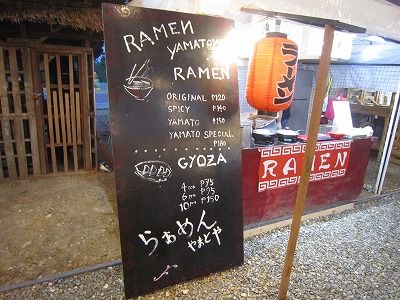 RAMEN
YAMATOYA
RAMEN
ORIGINAL ₱120
SPICY ₱140
YAMATO ₱150
YAMATO SPECIAL
₱180
GYOZA
4 PCS ₱75
6 PCS ₱95
10 PCS ₱150
らぁめん
やまとや
ラーメン
RAMEN